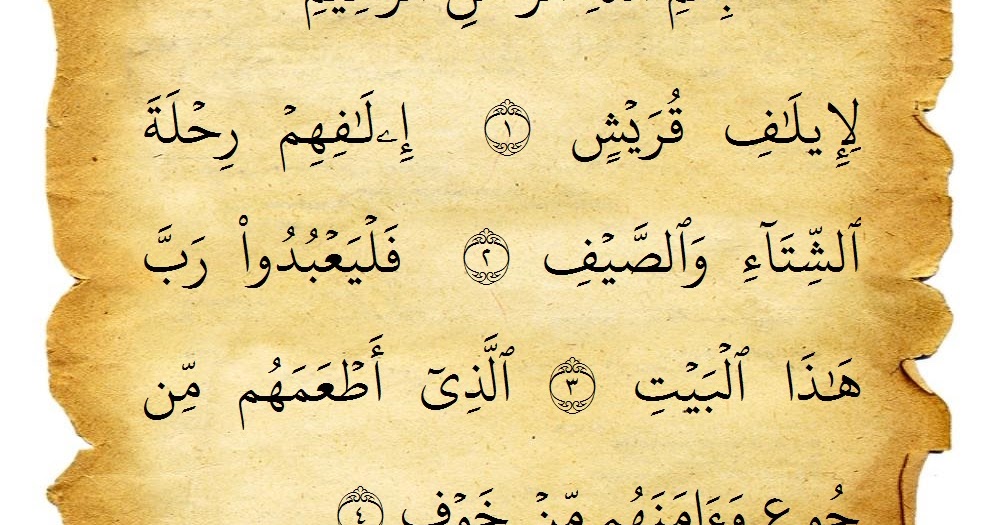 بِسْمِ ٱللَّهِ ٱلرَّحْمَٰنِ ٱلرَّحِيمِ
لِإِيلَٰفِ قُرَيْشٍ ١ إِۦلَٰفِهِمْ رِحْلَةَ
ٱلشِّتَآءِ وَٱلصَّيْفِ ٢ فَلْيَعْبُدُوا۟ رَبَّ
هَٰذَا ٱلْبَيْتِ ٣ ٱلَّذِىٓ أَطْعَمَهُم مِّن
جُوعٍ وَءَامَنَهُم مِّنْ خَوْفٍ ٤